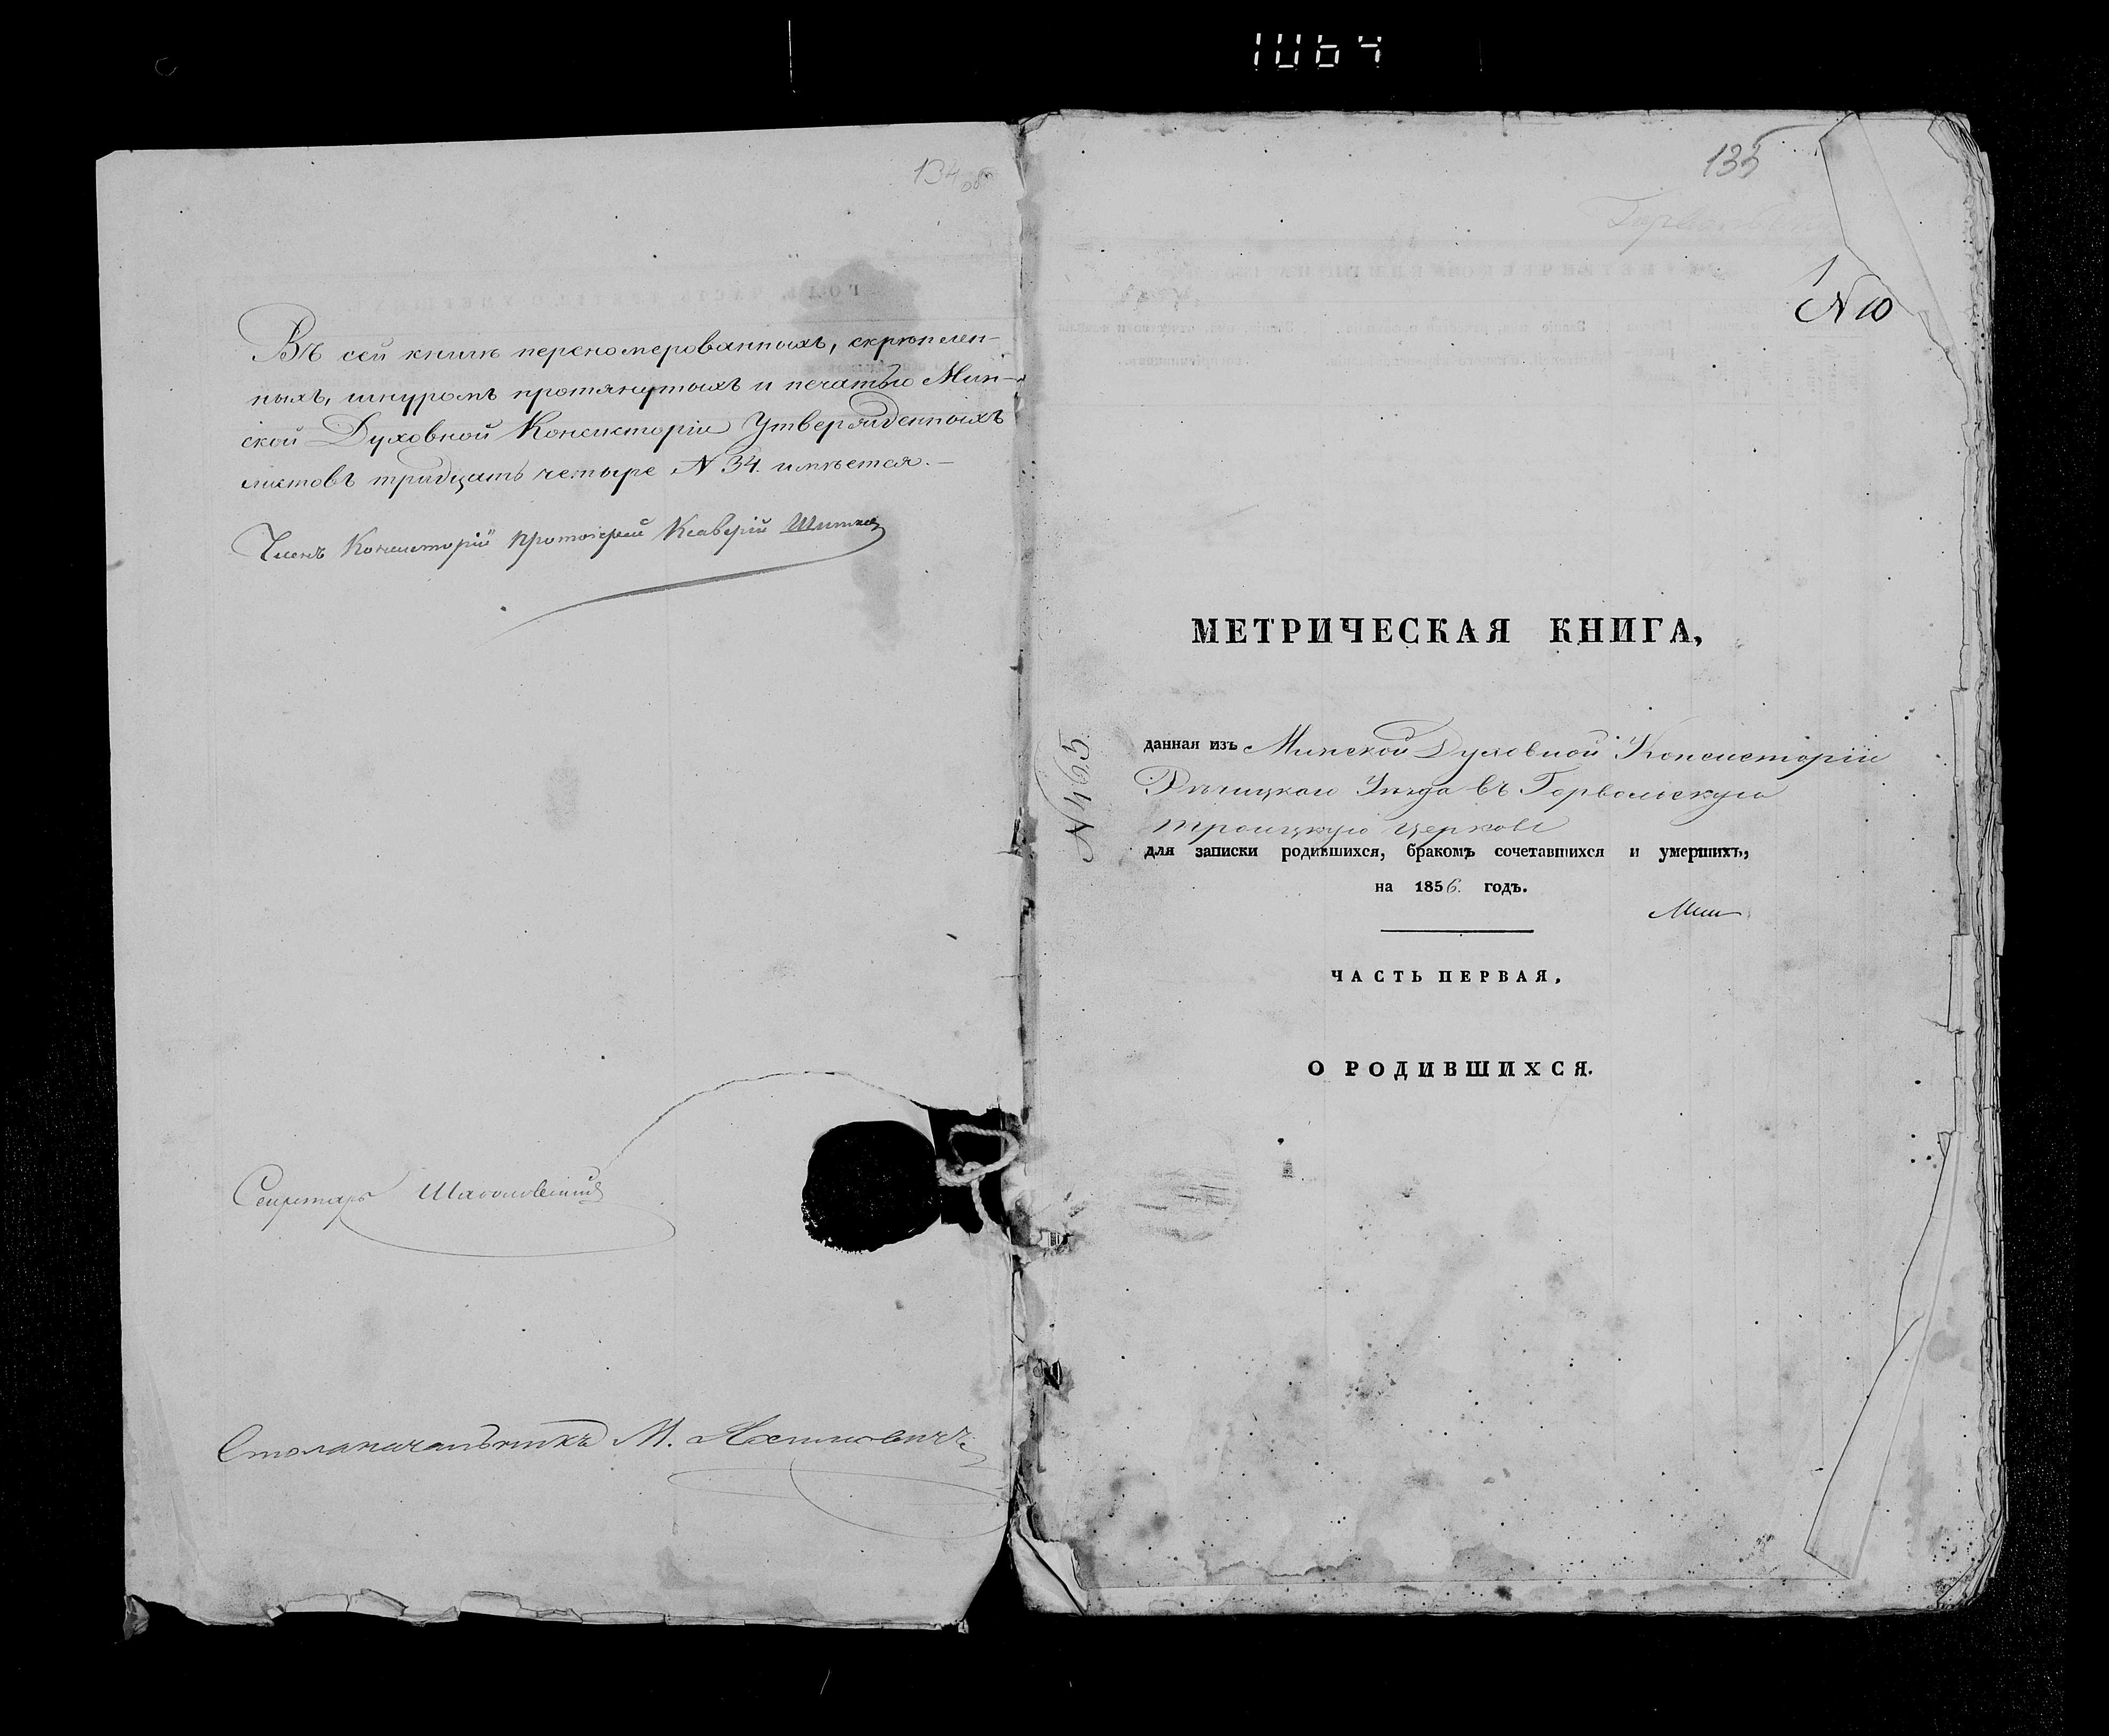 1064
134 об
Въ сей книгѣ перено­мерованныхъ, скрѣплен-
ныхъ, шнуромъ протянутыхъ и печатью Мин-
ской Духовной Консисторіи Утвержденныхъ
листовъ тридцать четыре N 34. имѣется.—
Членъ Консисторіи Протоіерей Ксаверій
Секретарь
Столоначальникъ М. Яхимовичъ
135
1
N 10
МЕТРИЧЕСКАЯ КНИГА,
N 4665
данная изъ Минской Духовной Консисторіи
Рѣчицкаго Уѣзда въ Горвольскую
троицкую церковь
для записки родившихся, бракомъ сочетавшихся и умершихъ,
на 1856. годъ.
ЧАСТЬ ПЕРВАЯ,
О РОДИВШИХСЯ.